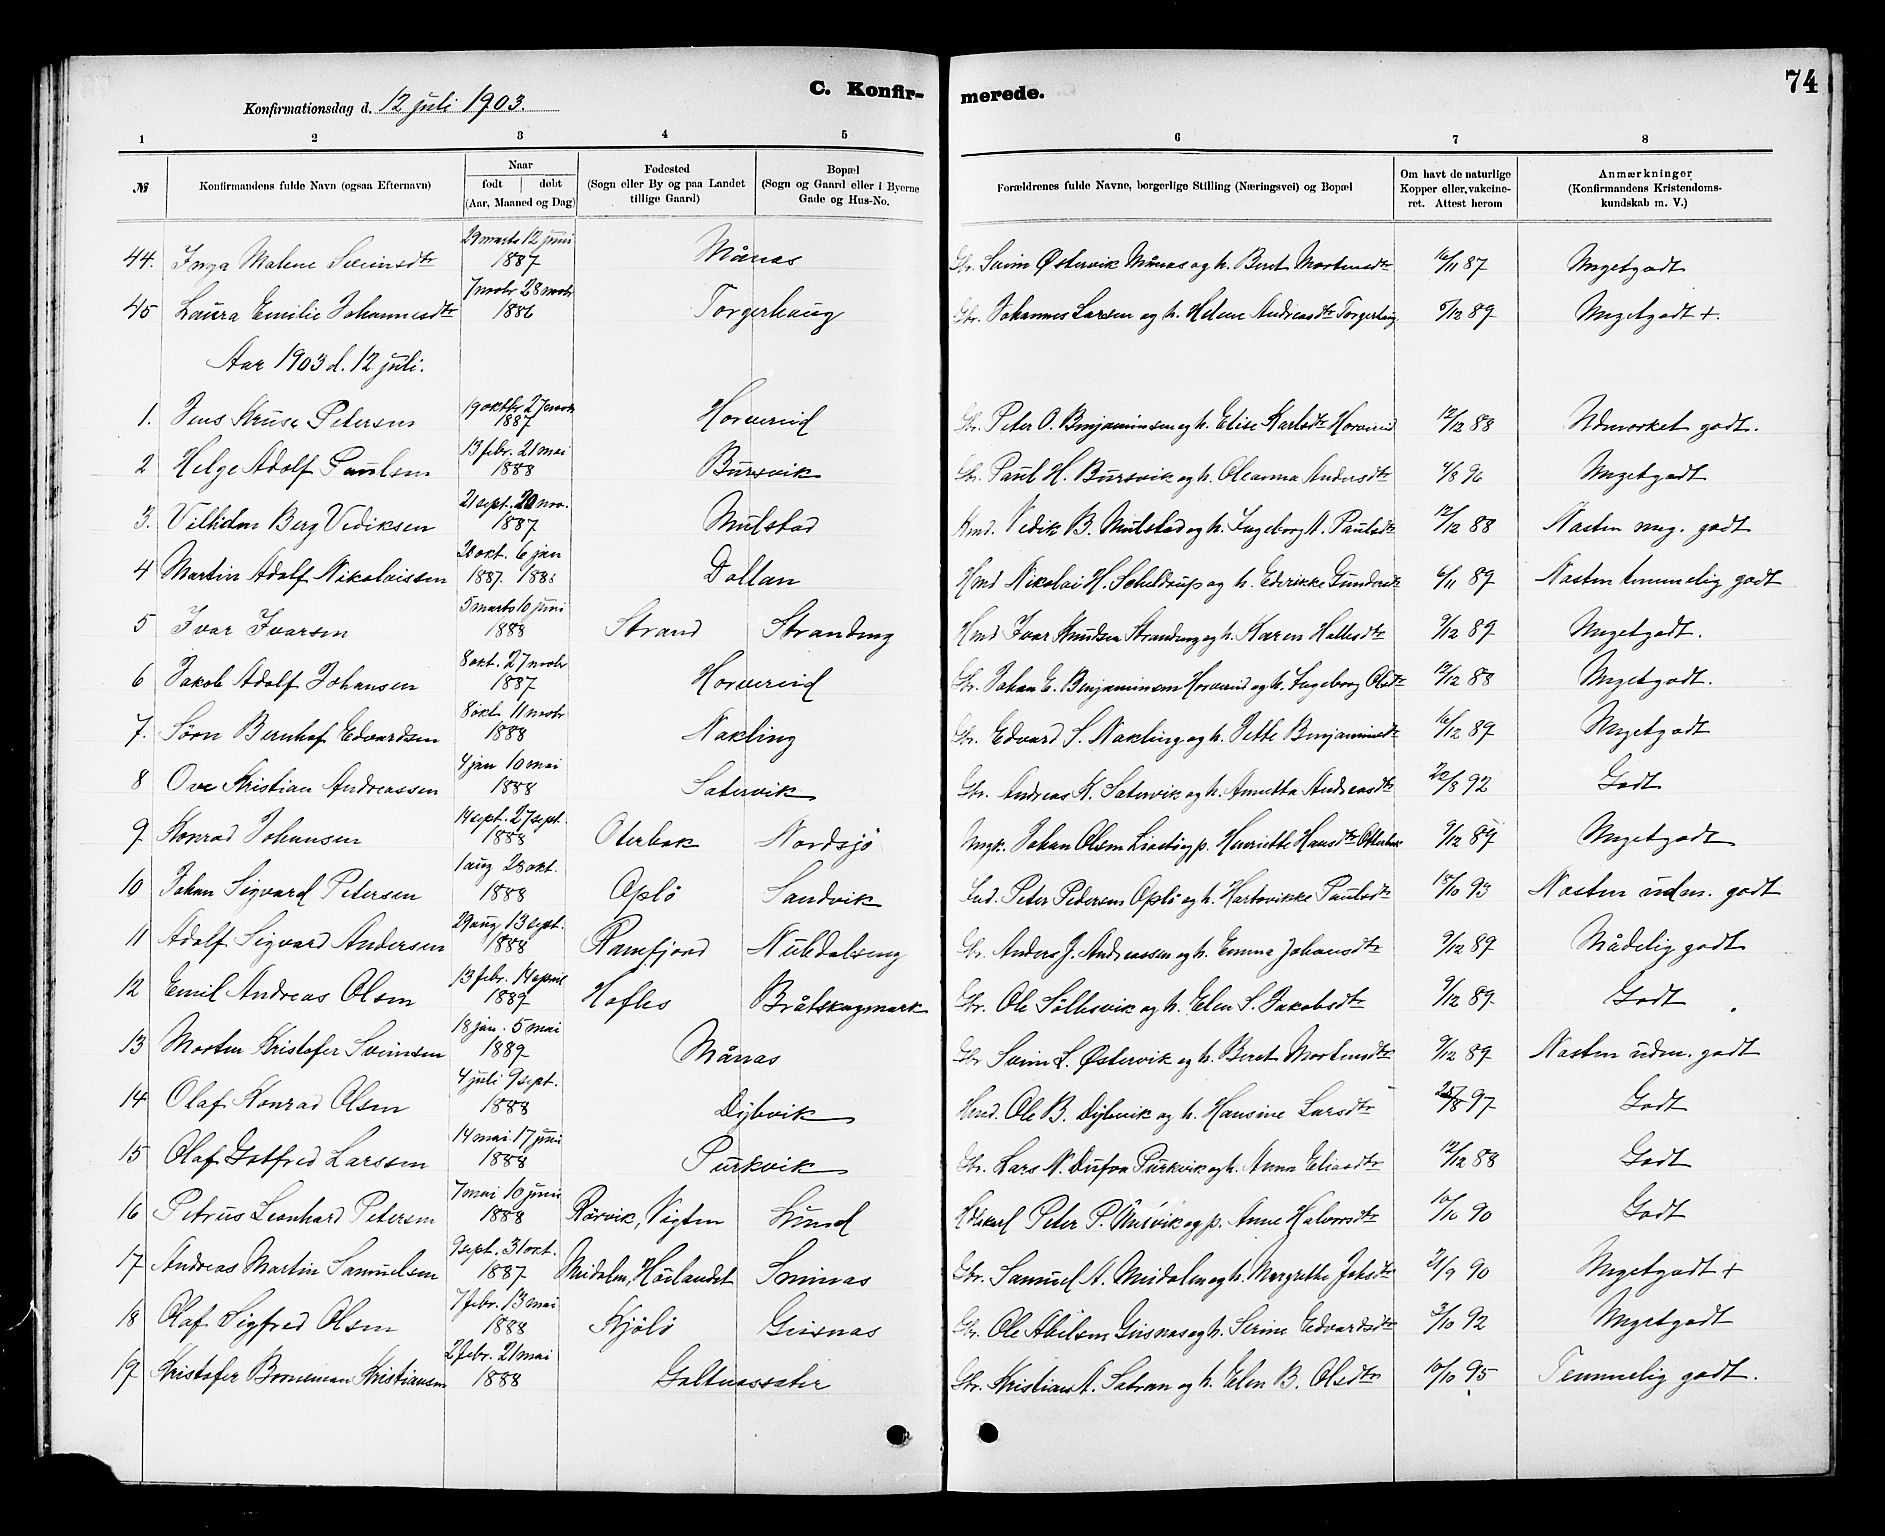 C. Konfirmerede.
74
Konfirmationsdag d. 12 juli 1903.
1 2 3 4 5 6 7 8
№
Konfirmandens fulde Navn (ogsaa Efternavn)
Naar
født | døbt
(Aar, Maaned og Dag)
Fødested
(Sogn eller By og paa Landet
tillige Gaard)
Bopæl
(Sogn og Gaard eller i Byerne
Gade og Hus-No.
Forældrenes fulde Navne, borgerlige Stilling (Næringsvei) og Bopæl
Om havt de naturlige
Kopper eller vakcine-
ret. Attest herom
Anmærkninger
(Konfirmandens Kristendoms-
kundskab m. V.)
44. Inga Malene Sveinsdtr 29 marts 12 juni 1887 Månas Gbr. Svein Østervik Månas og h. Beret Mortensdtr 16/11 87 Megetgodt
45 Laura Emilie Johannesdtr 7 novbr 28 novbr 1886 Torgerhaug Gbr. Johannes Larsen og h. Helene Andreasdtr Torgerhaug 5/12 89 Megetgodt +.
Aar 1903 d. 12 juli.
1. Jens Kruse Petersen 19 oktbr 27 novb 1887 Horvereid Gbr. Peter O. Benjaminsen og h. Elise Karlsdtr Horvereid 12/12 88 Udmærket godt.
2 Helge Adolf Paulsen 13 febr. 21 mai 1888 Bursvik Gbr. Paul H. Bursvik og h. Oleanna Andersdtr 4/8 96 Megetgodt
3. Vilhelm Berg Vediksen 21 sept. 20 nov. 1887 Mulstad Hmd. Vedik B. Mulstad og h. Ingeborg A. Paulsdtr 12/12 88 Næsten meg. godt
4 Martin Adolf Nikolaissen 20 okt. 6 jan 1887. 1888 Dollan Hmd Nikolai H. Scheldrup og h. Edrikke Gundersdtr 6/11 89 Næsten temmelig godt
5 Ivar Ivarsen 5 marts 10 juni 1888 Strand Strandeng Hmd Ivar Knudsen Strandeng og h. Karen Hallesdtr 9/12 89 Megetgodt.
6 Jakob Adolf Johansen 8 okt. 27 novbr 1887 Horvereid Gbr. Johan E. Benjaminsen Horvereid og h. Ingeborg Olsdtr 12/12 88 Megetgodt.
7. Søren Bernhof Edvardsen 8 okt 11 novbr 1888 Nakling Gbr. Edvard S. Nakling og h. Jette Benjaminsdtr 16/12 89 Megetgodt
8 Ove Kristian Andreassen 4 jan 10 mai 1888 Satervik Gbr. Andreas K. Satervik og h. Annetta Andreasdtr 22/8 92 Godt
9 Konrad Johansen 14 sept. 27 sept. 1888 Oterbak Nordsjö Ungk. Johan Olsen og p. Henriette Hansdtr Otterbak 9/12 89 Megetgodt
10 Johan Sigvard Petersen 1 aug 28 okt. 1888 Oplö Sandvik Ind. Peter Pedersen Oplö og h. Hartvikke Paulsdtr 18/10 93 Næsten udm. godt
11 Adolf Sigvard Andersen 29 aug 13 sept. 1888 Ranefjord Nuldalseng Gbr. Anders J. Andreassen og h. Emma Johansdtr 9/12 89 Mådelig godt
12 Emil Andreas Olsen 13 febr. 14 april 1889 Hofles Bråtskogmark Gbr. Ole Söllesvik og h. Elen S. Jakobsdtr 9/12 89 Godt
13 Morten Kristofer Sveinsen 18 jan. 5 mai 1889 Månas Gbr Svein L. Østervik og h. Beret Mortensdtr 9/12 89 Næsten udm. godt
14 Olaf Konrad Olsen 4 juli 9 sept. 1888 Dybvik Hmd. Ole B. Dybvik og h. Hansine Larsdtr 25/8 97 Godt
15 Olaf Gotfred Larssen 14 mai 17 juni 1888 Purkvik Gbr. Lars N. Dufva Purkvik og h. Anna Eliasdtr 12/12 88 Godt
16 Petrus Leonhard Petersen 7 mai 10 juni 1888 Rörvik, Vigten Lund Hdskarl Peter P. Ursvik og p. Anne Halvorsdtr 10/10 90 Godt
17 Andreas Martin Samuelsen 9 sept. 31 okt. 1887 Meidalen, Höilandet Sninas Gbr. Samuel A. Meidalen og h. Margrethe Johsdtr 21/9 90 Megetgodt +
18 Olaf Sigfred Olsen 7 febr. 13 mai 1888 Kjölö Geisnas Gbr. Ole Abelsen Geisnas og h. Serine Edvardsdtr 3/10 92 Megetgodt
19 Kristofer Borneman Kristiansen 2 febr. 21 mai 1888 Galtnassater Gbr. Kristian A. Satran og h. Elen B. Olsdtr 10/10 95 Temmelig godt.